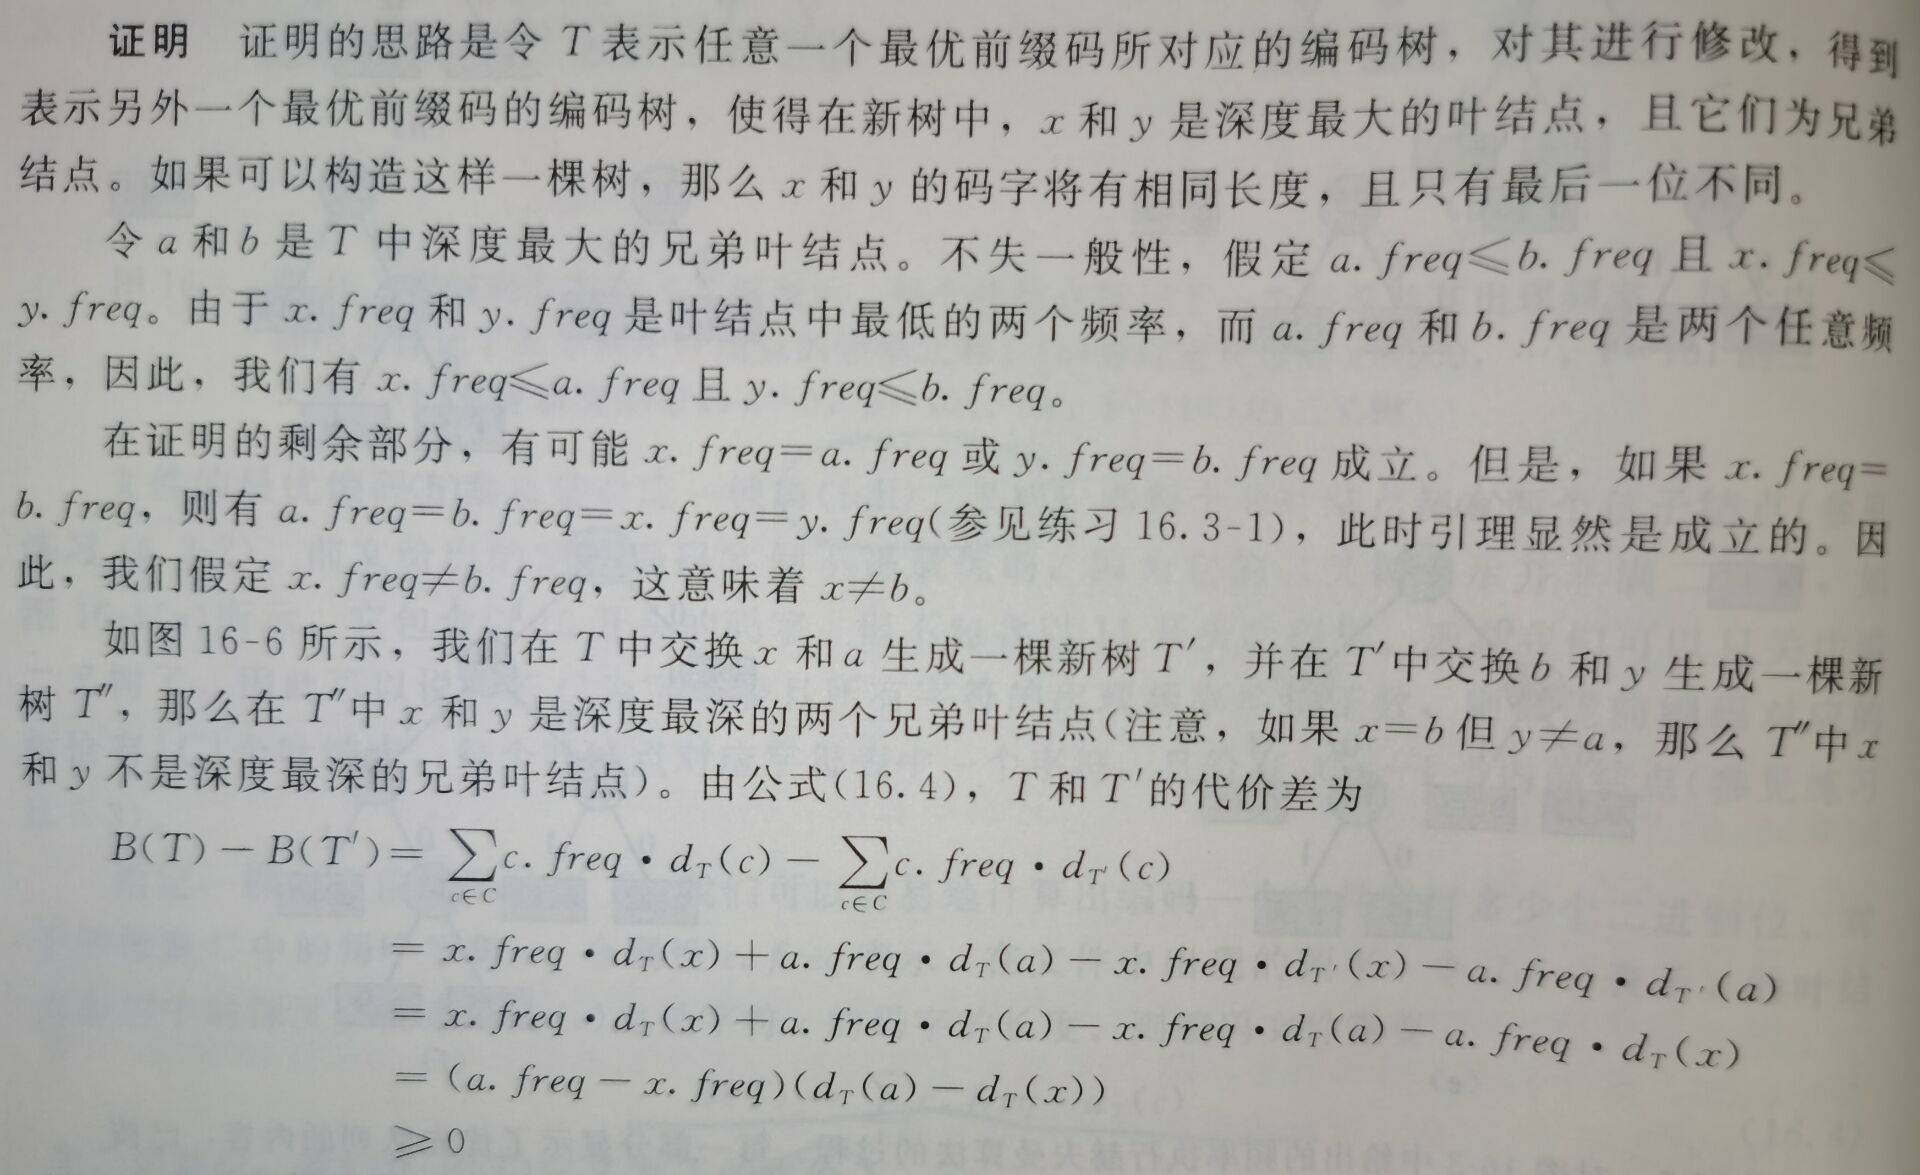 证明 证明的思路是令 T 表示任意一个最优前缀码所对应的编码树，对其进行修改，得到
表示另外一个最优前缀码的编码树，使得在新树中，x 和 y 是深度最大的叶结点，且它们为兄弟
结点。如果可以构造这样一棵树，那么 x 和 y 的码字将有相同长度，且只有最后一位不同。
令 a 和 b 是 T 中深度最大的兄弟叶结点。不失一般性，假定 a. freq⩽b. freq 且 x. freq⩽
y. freq。由于 x. freq 和 y. freq 是叶结点中最低的两个频率，而 a. freq 和 b. freq 是两个任意频
率，因此，我们有 x. freq⩽a. freq 且 y. freq⩽b. freq。
在证明的剩余部分，有可能 x. freq=a. freq 或 y. freq=b. freq 成立。但是，如果 x. freq=
b. freq，则有 a. freq=b. freq=x. freq=y. freq(参见练习 16.3-1)，此时引理显然是成立的。因
此，我们假定 x. freq≠b. freq，这意味着 x≠b。
如图 16-6 所示，我们在 T 中交换 x 和 a 生成一棵新树 T′，并在 T′中交换 b 和 y 生成一棵新
树 T″，那么在 T″中 x 和 y 是深度最深的两个兄弟叶结点(注意，如果 x=b 但 y≠a，那么 T″中 x
和 y 不是深度最深的兄弟叶结点)。由公式(16.4)，T 和 T′的代价差为
B(T) − B(T′) = ∑_{c∈C} c. freq • d_T(c) − ∑_{c∈C} c. freq • d_{T′}(c)
= x. freq • d_T(x) + a. freq • d_T(a) − x. freq • d_{T′}(x) − a. freq • d_{T′}(a)
= x. freq • d_T(x) + a. freq • d_T(a) − x. freq • d_T(a) − a. freq • d_T(x)
= (a. freq − x. freq)(d_T(a) − d_T(x))
⩾ 0